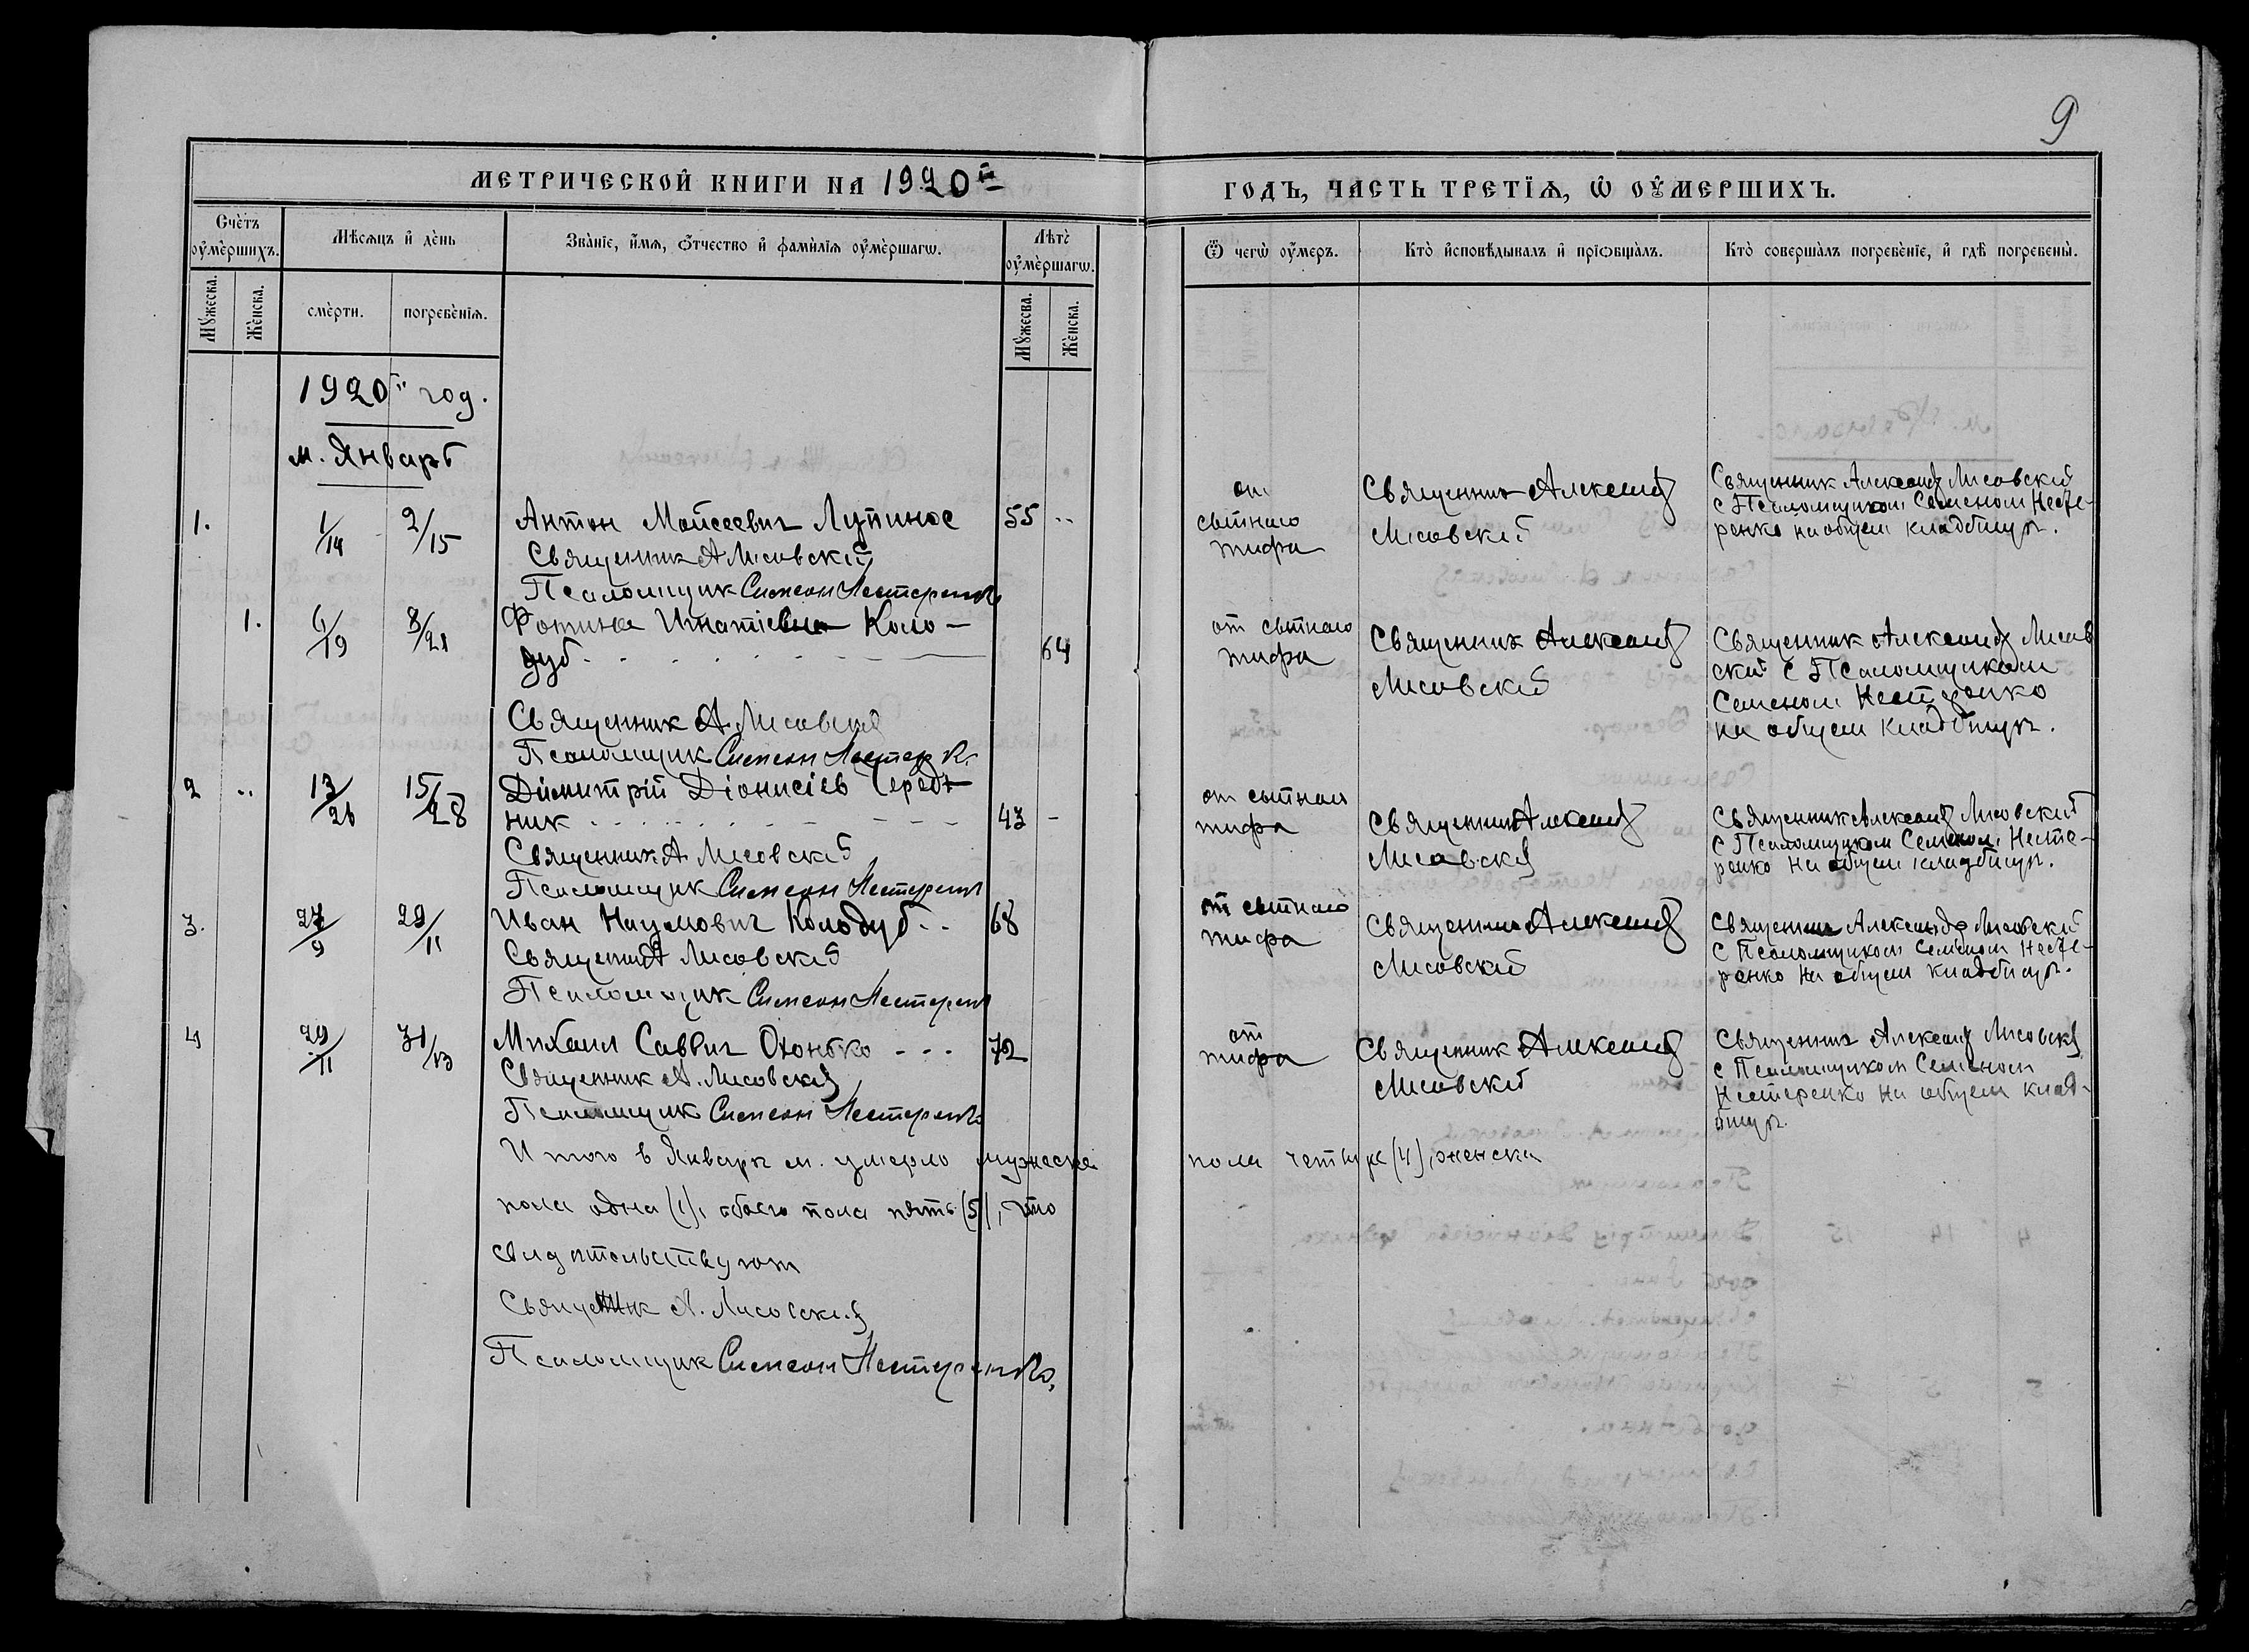 9
МЕТРИЧЕСКОЙ КНИГИ НА 1920й
ГОДЪ, ЧАСТЬ ТРЕТІѦ, Ѡ ОУМЕРШИХЪ.
Счетъ оумершихъ.
Мѣсяцъ и день
Званіе, имя, отчество и фамиліѧ оумершагѡ.
Лѣтъ оумершагѡ.
Ѿ чегѡ оумеръ.
Кто исповѣдывалъ и пріобщалъ.
Кто совершалъ погребеніе, и гдѣ погребены.
Мужеска.
Женска.
смерти.
погребеніѧ.
Мужеска.
Женска.
1920й год.
м. Январь
1.
1/14
2/15
Антон Мойсеевич Лупинос
55
Священник А Лисовский
Псаломщик Симеон Нестеренко
от
сыпного
тифа
Священник Александр
Лисовский
Священник Александр Лисовский
с Псаломщиком Семеном Несте-
ренко на общем кладбище.
1.
6/19
8/21
Фотина Игнатіевна Коло-
дуб
64
Священник А Лисовский
Псаломщик Симеон Нестер
от сыпного
тифа
Священник Александр
Лисовский
Священник Александр Лисов
ский с Псаломщиком
Семеном Нестеренко
на общем кладбище.
2
13/26
15/28
Димитрій Діонисіев Серед
ник
43
Священник А Лисовский
Псаломщик Симеон Нестеренко
от сыпного
тифа
Священник Александр
Лисовский
Священник Александр Лисовский
с Псаломщиком Семеном Несте-
ренко на общем кладбище.
3.
27/9
29/11
Иван Наумович Колодуб
68
Священник А Лисовский
Псаломщик Симеон Нестеренко
от сыпного
тифа
Священник Александр
Лисовский
Священник Александр Лисовский
с Псаломщиком Семеном Несте-
ренко на общем кладбище.
4
29/11
31/13
Михаил Саввич Охонько
72
Священник А. Лисовский
Псаломщик Симеон Нестеренко
от
тифа
Священник Александр
Лисовский
Священник Александр Лисовский
с Псаломщиком Семеном
Нестеренко на общем клад-
бище.
Итого в Январе м. умерло мужеска пола четыре (4), женска
пола одна (1), обоего пола пять (5), что
свидетельствуют
Священник А. Лисовский
Псаломщик Симеон Нестеренко.